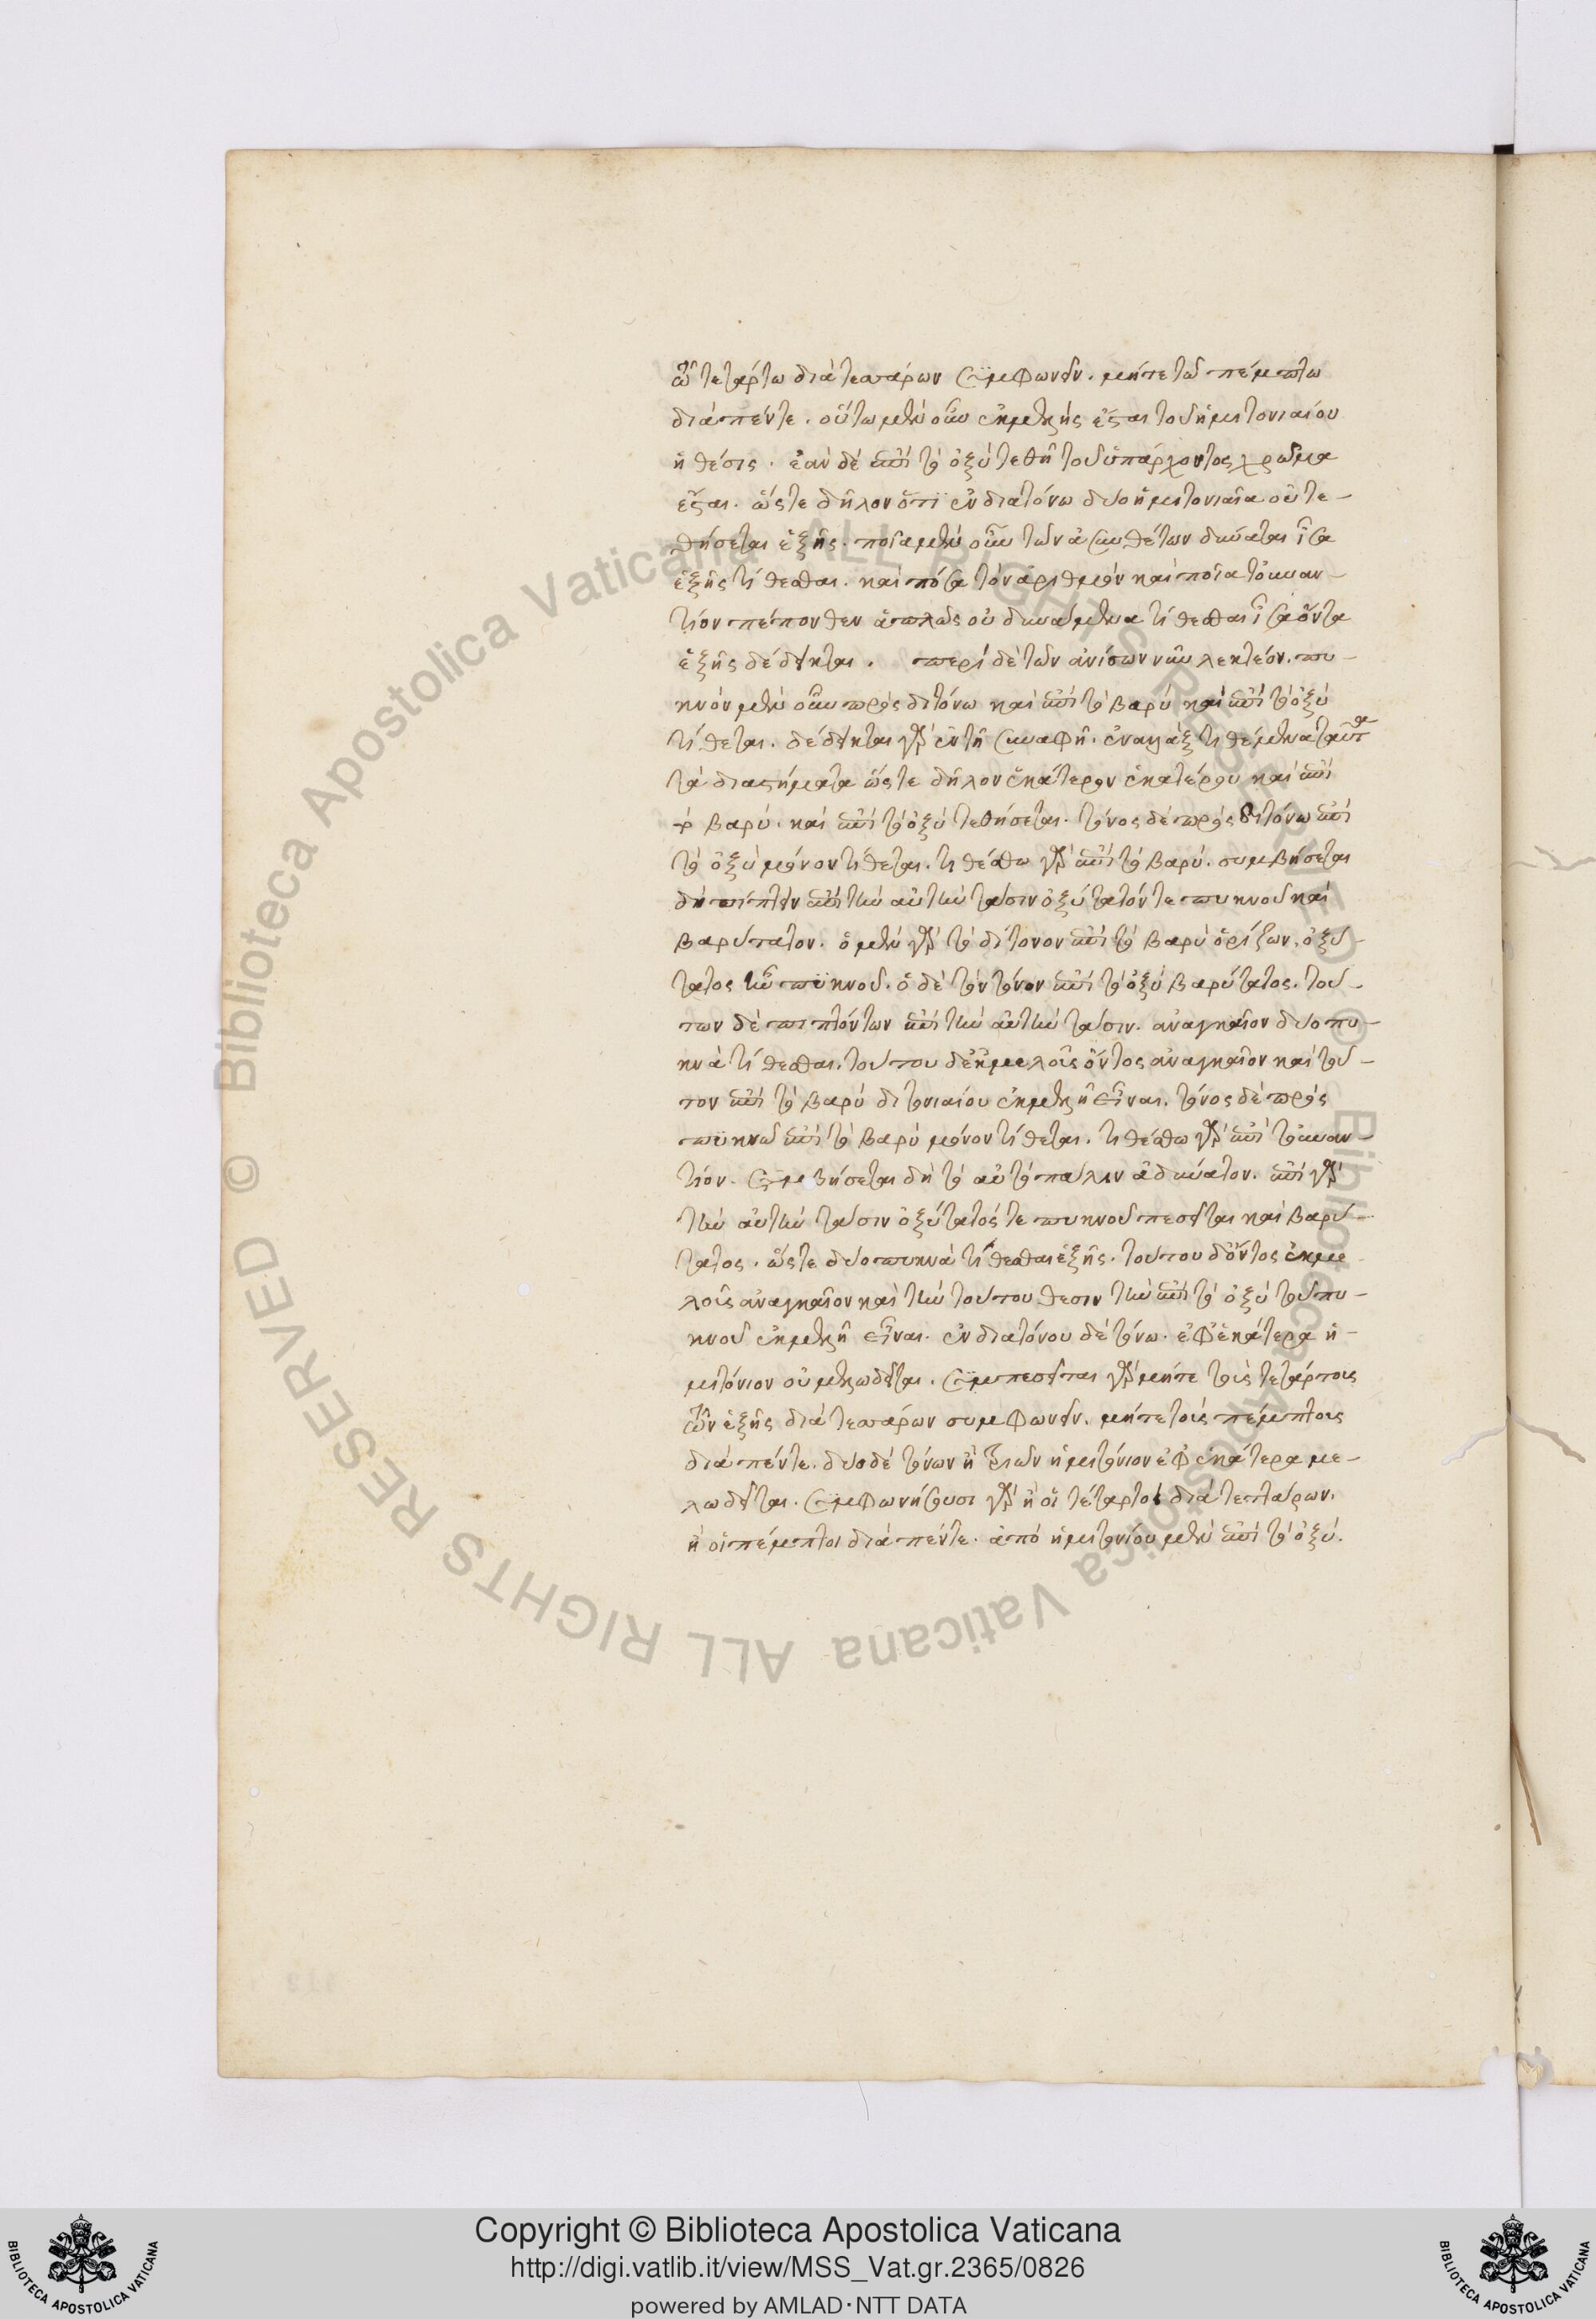 τῶ τετάρτω διὰ τεσσάρων συμφωνεῖν. μήτε τῶ πέμπτω
διὰ πέντε. οὕτω μὲν οὖν ἐκμελὴς ἔσται τοῦ ἡμιτονιαίου
ἡ θέσις. ἐὰν δὲ ἐπὶ τὸ ὀξὺ τεθῆ τοῦ ὑπάρχοντος χρῶμα
ἔσται. ὥστε δῆλον ὅτι ἐν διατόνω δύο ἡμιτονιαῖα οὐ τε-
θήσεται ἑξῆς. ποῖα μὲν οὖν τῶν ἀσυνθέτων δύναται ἴσα
ἑξῆς τίθεσθαι. καὶ πόσα τὸν ἀριθμὸν καὶ ποῖα τὸ ἐναν-
τίον πέπονθεν ἁπλῶς οὐ δυνάμενα τίθεσθαι ἴσα ὄντα
ἑξῆς δέδεικται. περὶ δὲ τῶν ἀνίσων νῦν λεκτέον. πυ-
κνὸν μὲν οὖν πρὸς διτόνω καὶ ἐπὶ τὸ βαρὺ καὶ ἐπὶ τὸ ὀξὺ
τίθεται. δέδεικται γὰρ ἐν τῆ συναφῆ. ἐναλλὰξ τιθέμενα ταῦτα
τὰ διαστήματα ὥστε δῆλον ἑκάτερον ἑκατέρου καὶ ἐπὶ
τὸ βαρύ. καὶ ἐπὶ τὸ ὀξὺ τεθήσεται. τόνος δὲ πρὸς διτόνω ἐπὶ
τὸ ὀξὺ μόνον τίθεται. τιθέσθω γὰρ ἐπὶ τὸ βαρύ. συμβήσεται
δὴ πίπτειν ἐπὶ τὴν αὐτὴν τάσιν ὀξύτατόν τε πυκνοῦ καὶ
βαρύτατον. ὁ μὲν γὰρ τὸ δίτονον ἐπὶ τὸ βαρὺ ὁρίζων. ὀξύ-
τατος ἦν πυκνοῦ. ὁ δὲ τὸν τόνον ἐπὶ τὸ ὀξὺ βαρύτατος. τού-
των δὲ πιπτόντων ἐπὶ τὴν αὐτὴν τάσιν. ἀναγκαῖον δύο πυ-
κνὰ τίθεσθαι. τούτου δ' ἐκμελοῦς ὄντος ἀναγκαῖον καὶ τό-
νον ἐπὶ τὸ βαρὺ διτονιαίου ἐκμελῆ εἶναι. τόνος δὲ πρὸς
πυκνῶ ἐπὶ τὸ βαρὺ μόνον τίθεται. τιθέσθω γὰρ ἐπὶ τὸ ἐναν-
τίον. συμβήσεται δὴ τὸ αὐτὸ πάλιν ἀδύνατον. ἐπὶ γὰρ
τὴν αὐτὴν τάσιν ὀξύτατός τε πυκνοῦ πεσεῖται καὶ βαρύ-
τατος. ὥστε δύο πυκνὰ τίθεσθαι ἑξῆς. τούτου δ' ὄντος ἐκμε
λοῦς ἀναγκαῖον καὶ τὴν τούτου θέσιν τὴν ἐπὶ τὸ ὀξὺ τοῦ πυ-
κνοῦ ἐκμελῆ εἶναι. ἐν διατόνου δὲ τόνω. ἐφ' ἑκάτερα ἡ-
μιτόνιον οὐ μελωδεῖται. συμπεσεῖται γὰρ μήτε τοὺς τετάρτους
τῶν ἑξῆς διὰ τεσσάρων συμφωνεῖν. μήτε τοὺς πέμπτους
διὰ πέντε. δύο δὲ τόνων ἢ τριῶν ἡμιτόνιον ἐφ' ἑκάτερα με-
λωδεῖται. συμφωνήσουσι γὰρ ἢ οἱ τέταρτοι διὰ τεττάρων.
ἢ οἱ πέμπτοι διὰ πέντε. ἀπὸ ἡμιτονίου μὲν ἐπὶ τὸ ὀξύ.
Copyright © Biblioteca Apostolica Vaticana
http://digi.vatlib.it/view/MSS_Vat.gr.2365/0826
powered by AMLAD・NTT DATA
BIBLIOTECA APOSTOLICA VATICANA
BIBLIOTECA APOSTOLICA VATICANA
© Biblioteca Apostolica Vaticana ALL RIGHTS RESERVED
© Biblioteca Apostolica Vaticana ALL RIGHTS RESERVED